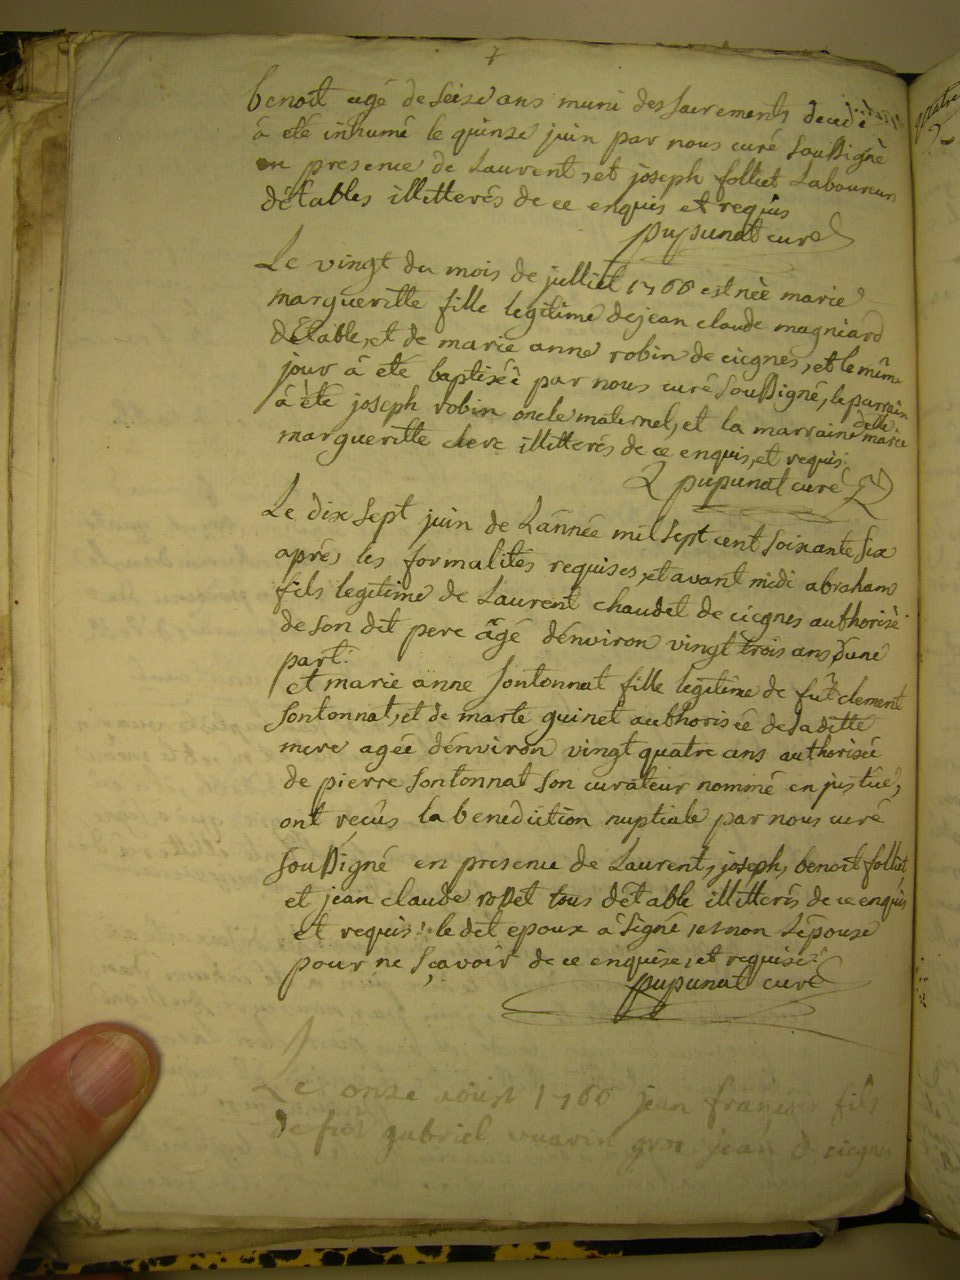 7
benoit agé de seize ans muni des sacrements decedé
à été inhumé le quinze juin par nous curé soussigné
en presence de Laurent, et joseph folliet Laboureurs
détables illitterés de ce enquis et requis
pupunat curé
Le vingt du mois de julliet 1766 est née marie
margueritte fille legitime de jean claude magniard
détable, et de marie anne robin de cicgnes, et le même
jour à été baptiséé par nous curé soussigné, le parrain
à été joseph robin oncle maternel, et la marraine delle marie
margueritte clerc illitterés de ce enquis, et requis.
pupunat curé
Le dix sept juin de Lánnée mil sept cent soixante six
aprés les formalités requises, et avant midi abraham
fils legitime de Laurent chaudet de cicgnes authorisé
de son dit pere âgé dénviron vingt trois ans, dúne
part.
et marie anne sontonnat fille legitime de fût clement
sontonnat, et de marte guinet authorisée de sa ditte
mere agée dénviron vingt quatre ans authorisée
de pierre sontonnat son curateur nommé en justice,
ont reçûs la benédiction nuptiale par nous curé
soussigné en presence de Laurent, joseph, benoit folliet,
et jean claude rosset tous détable illitterés de ce enquis
et requis: le dit epoux à signé, et non Lépouse
pour ne sçavoir de ce enquise, et requise.
pupunat curé
Le onze aoust 1766 jean françois fils
de fut gabriel vuarin gros jean d cicgnes
quatre